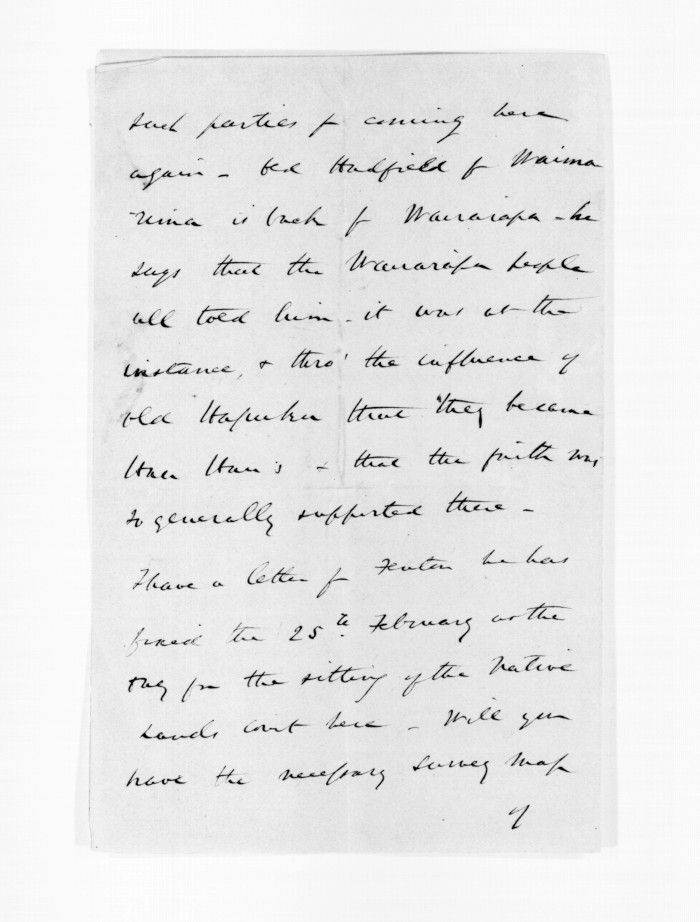 such parties f coming here
again - Ted Hadfield f Waima
rima is back f Wairarapa - he
says that the Wairarapa people
all told him - it was at the
instance, & thro' the influence of
old Hapuku that they became
Hau Hau's & that the faith was
so generally supported there -
I have a letter f Fenton he has
fixed the 25th. February as the
day for the sitting of the Native
Lands Court here - Will you
have the necessary survey map
of